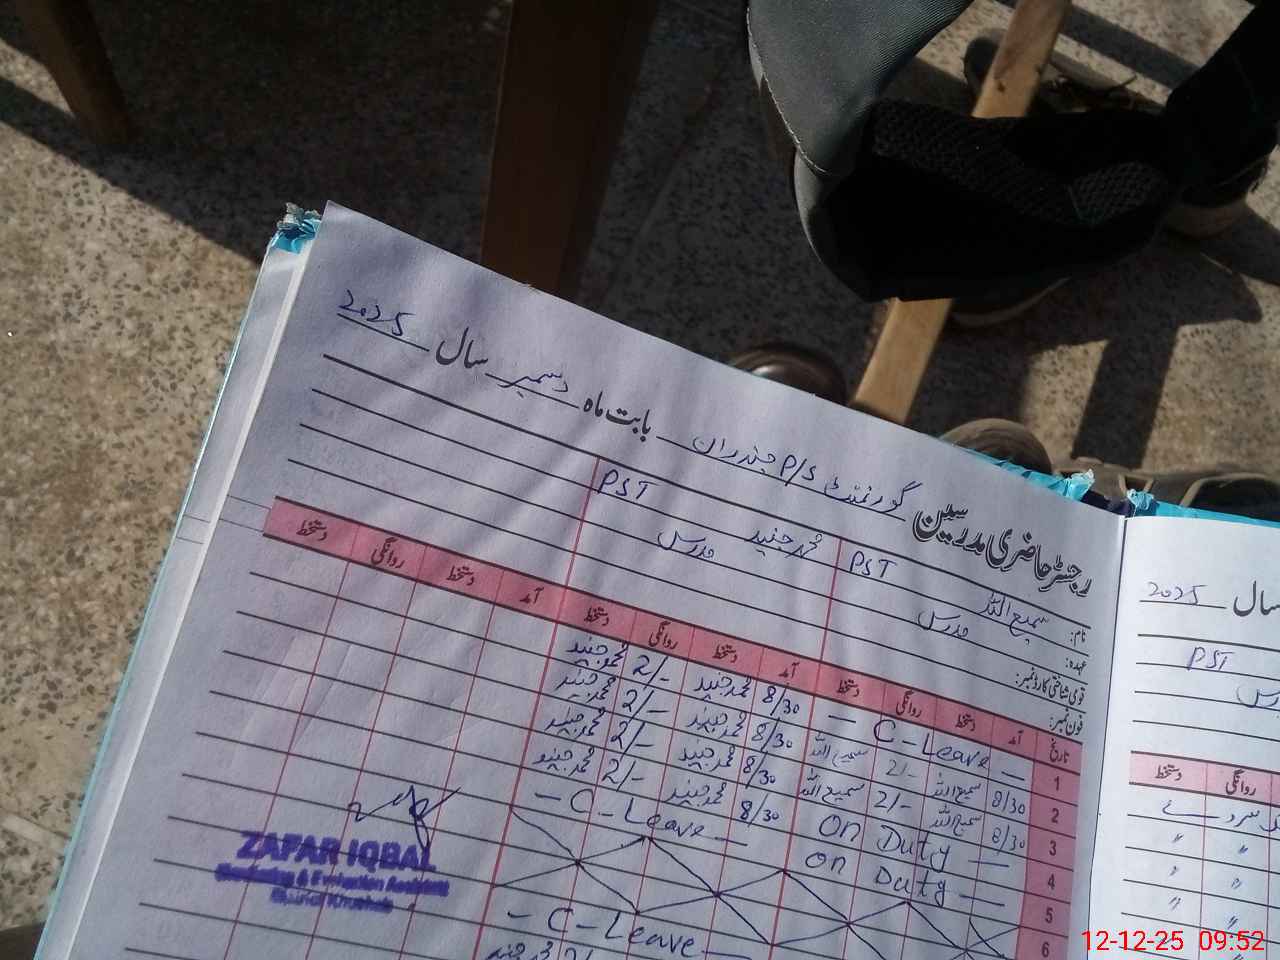 رجسٹر حاضری مدرسین گورنمنٹ P/S چندران بابت ماہ دسمبر سال 2025
نام: سمیع اللہ PST محمد جنید PST
عہدہ: مدرس مدرس
قومی شناختی کارڈ نمبر:
فون نمبر:
تاریخ آمد دستخط روانگی دستخط آمد دستخط روانگی دستخط آمد دستخط روانگی دستخط
1 — C-Leave — 8/30 محمد جنید 2/- محمد جنید
2 8/30 سمیع اللہ 2/- سمیع اللہ 8/30 محمد جنید 2/- محمد جنید
3 8/30 سمیع اللہ 2/- سمیع اللہ 8/30 محمد جنید 2/- محمد جنید
4 On Duty — 8/30 محمد جنید 2/- محمد جنید
5 On Duty — - C-Leave -
6
- C-Leave -
ZAFAR IQBAL
Monitoring & Evaluation Assistant
سال 2025
PST
مدرس
روانگی دستخط
12-12-25 09:52